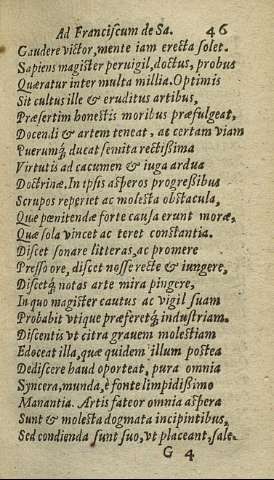 Ad Franciſcum de Sa. 46
Gaudere victor, mente iam erecta ſolet.
Sapiens magiſter peruigil, doctus, probus
Quæratur inter multa millia. Optimis
Sit cultus ille & eruditus artibus,
Præſertim honeſtis moribus præfulgeat,
Docendi & artem teneat, ac certam viam
Puerumq́; ducat ſemita rectißima
Virtutis ad cacumen & iuga ardua
Doctrinæ. In ipſis aſperos progreßibus
Scrupos reperiet ac moleſta obſtacula,
Quæ pœnitendæ forte cauſa erunt moræ,
Quæ ſola vincet ac teret conſtantia.
Diſcet ſonare litteras, ac promere
Preſſo ore, diſcet neſſe recte & iungere,
Diſcetq́; notas arte mira pingere,
In quo magiſter cautus ac vigil ſuam
Probabit vtique præferetq́; induſtriam.
Diſcentis vt citra grauem moleſtiam
Edoceat illa, quæ quidem illum poſtea
Dediſcere haud oporteat, pura omnia
Syncera, munda, è fonte limpidißimo
Manantia. Artis fateor omnia aſpera
Sunt & moleſta dogmata incipientibus,
Sed condienda ſunt ſuo, vt placeant, ſale.
G 4